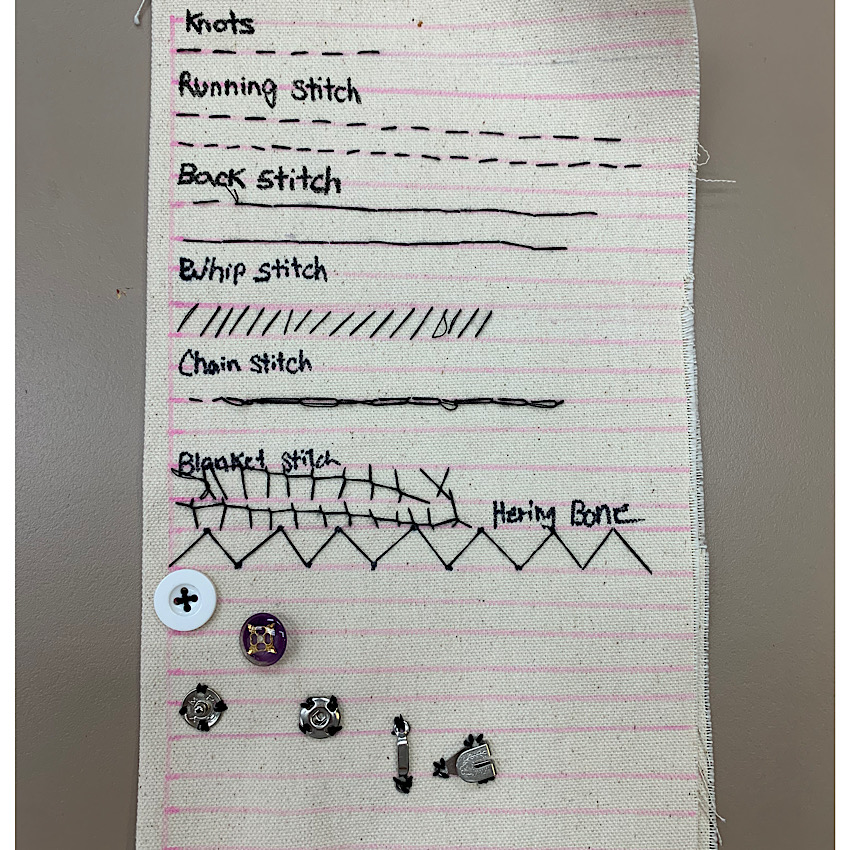 Knots
Running stitch
Back stitch
Whip stitch
Chain stitch
Blanket stitch
Hering Bone